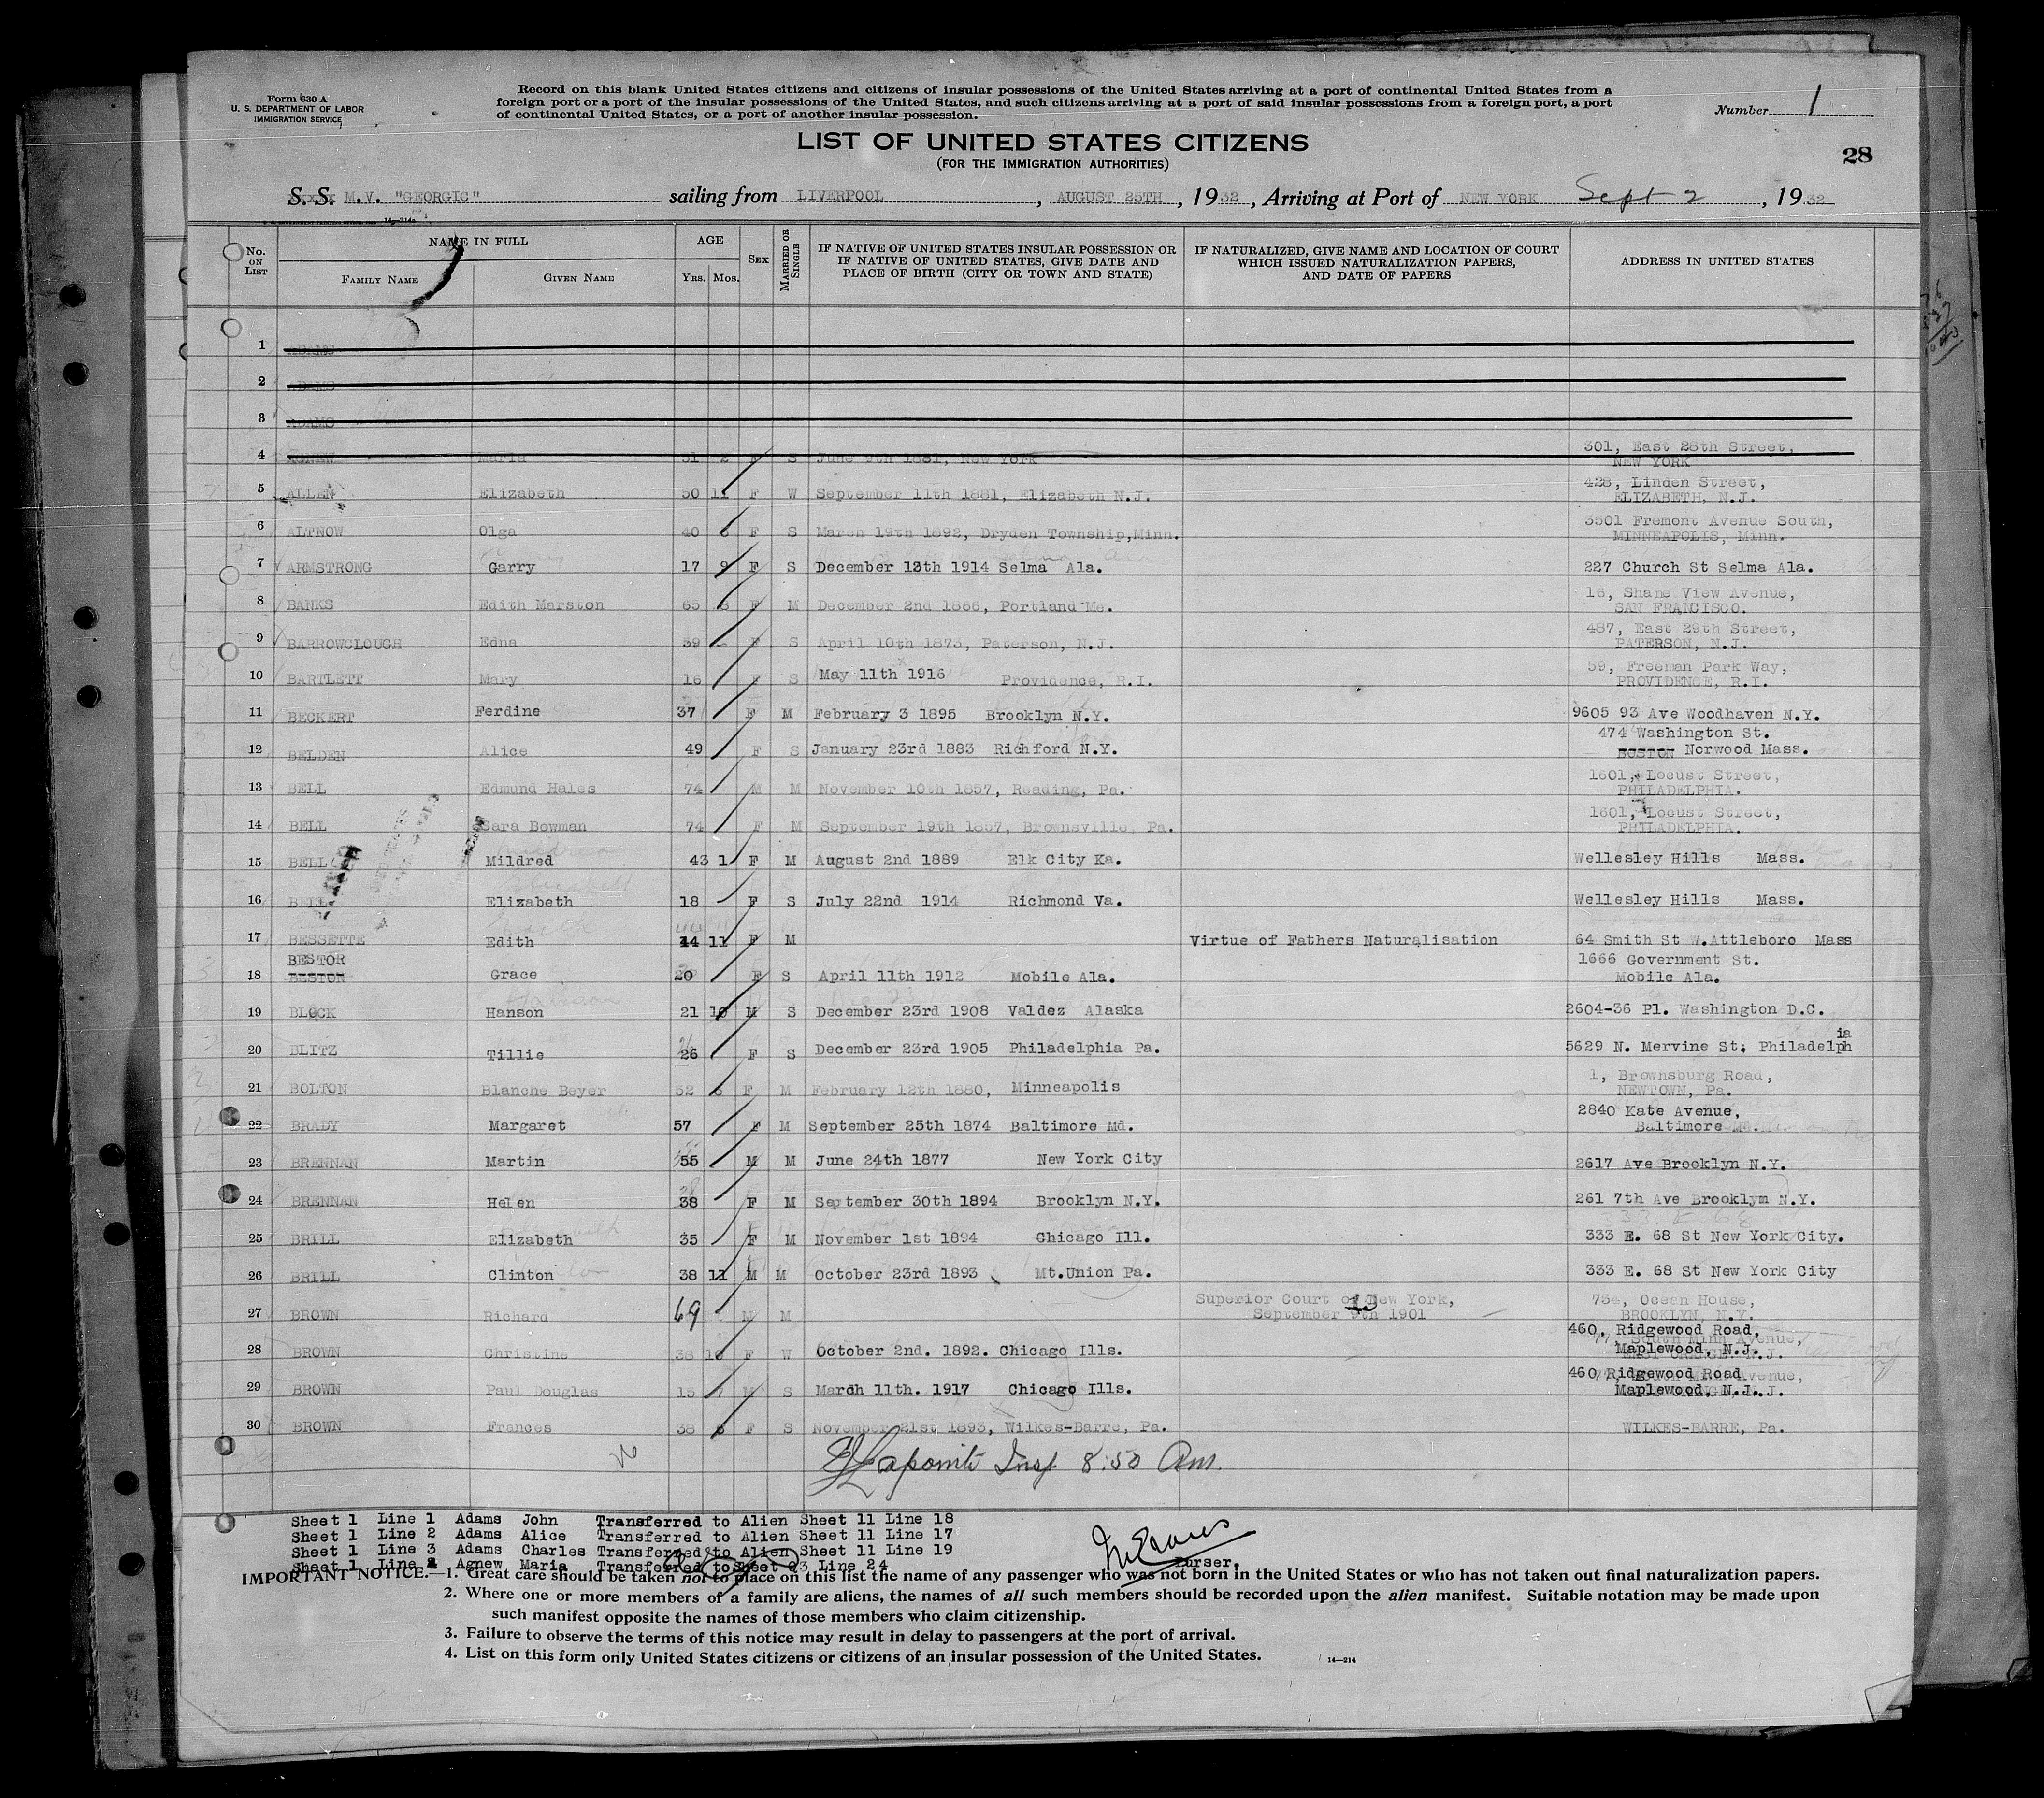 Form 630 A
U. S. DEPARTMENT OF LABOR
IMMIGRATION SERVICE
Record on this blank United States citizens and citizens of insular possessions of the United States arriving at a port of continental United States from a
foreign port or a port of the insular possessions of the United States, and such citizens arriving at a port of said insular possessions from a foreign port, a port
of continental United States, or a port of another insular possession.
Number 1
LIST OF UNITED STATES CITIZENS
(FOR THE IMMIGRATION AUTHORITIES)
28
S. S. M.V. "GEORGIC" sailing from LIVERPOOL, AUGUST 25TH, 1932, Arriving at Port of NEW YORK Sept 2, 1932
No. ON LIST
NAME IN FULL
FAMILY NAME
GIVEN NAME
AGE
Yrs. Mos.
SEX
MARRIED OR SINGLE
IF NATIVE OF UNITED STATES INSULAR POSSESSION OR
IF NATIVE OF UNITED STATES, GIVE DATE AND
PLACE OF BIRTH (CITY OR TOWN AND STATE)
IF NATURALIZED, GIVE NAME AND LOCATION OF COURT
WHICH ISSUED NATURALIZATION PAPERS,
AND DATE OF PAPERS
ADDRESS IN UNITED STATES
1 ADAMS
2 ADAMS
3 ADAMS
4 AGNEW Maria 51 2 F S June 9th 1881, New York 301, East 28th Street,
NEW YORK
5 ALLEN Elizabeth 50 11 F W September 11th 1881, Elizabeth N.J. 428, Linden Street,
ELIZABETH, N.J.
6 ALTNOW Olga 40 F S March 19th 1892, Dryden Township, Minn. 3501 Fremont Avenue South,
MINNEAPOLIS, Minn.
7 ARMSTRONG Garry 17 9 F S December 13th 1914 Selma Ala. 227 Church St Selma Ala.
8 BANKS Edith Marston 65 F M December 2nd 1866, Portland Me. View Avenue,
SAN FRANCISCO.
9 BARROWCLOUGH Edna 39 F S April 10th 1873, Paterson, N.J. 487, East 29th Street,
PATERSON, N.J.
10 BARTLETT Mary 16 F S May 11th 1916 Providence, R.I. 59, Freeman Park Way,
PROVIDENCE, R.I.
11 BECKERT Ferdine 37 F M February 3 1895 Brooklyn N.Y. 9605 93 Ave Woodhaven N.Y.
12 BELDEN Alice 49 F S January 23rd 1883 Richford N.Y. 474 Washington St.
BOSTON Norwood Mass.
13 BELL Edmund Hales 74 M M November 10th 1857, Reading, Pa. 1601, Locust Street,
PHILADELPHIA.
14 BELL Sara Bowman 74 F M September 19th 1857, Brownsville, Pa. 1601, Locust Street,
PHILADELPHIA.
15 BELL Mildred 43 1 F M August 2nd 1889 Elk City Ka. Wellesley Hills Mass.
16 BELL Elizabeth 18 F S July 22nd 1914 Richmond Va. Wellesley Hills Mass.
17 BESSETTE Edith 44 11 F M Virtue of Fathers Naturalisation 64 Smith St W.Attleboro Mass
BESTOR
18 BESTON Grace 20 F S April 11th 1912 Mobile Ala. 1666 Government St.
Mobile Ala.
19 BLOCK Hanson 21 10 M S December 23rd 1908 Valdez Alaska 2604-36 Pl. Washington D.C.
20 BLITZ Tillie 26 F S December 23rd 1905 Philadelphia Pa. 5629 N. Mervine St. Philadelphia
21 BOLTON Blanche Beyer 52 6 F M February 12th 1880, Minneapolis 1, Brownsburg Road,
NEWTOWN, Pa.
22 BRADY Margaret 57 F M September 25th 1874 Baltimore Md. 2840 Kate Avenue,
Baltimore Md.
23 BRENNAN Martin 55 M M June 24th 1877 New York City 2617 Ave Brooklyn N.Y.
24 BRENNAN Helen 38 F M September 30th 1894 Brooklyn N.Y. 261 7th Ave Brooklym N.Y.
25 BRILL Elizabeth 35 F M November 1st 1894 Chicago Ill. 333 E. 68 St New York City.
26 BRILL Clinton 38 11 M M October 23rd 1893 Mt.Union Pa. 333 E. 68 St New York City
27 BROWN Richard 69 M M Superior Court of New York,
September 9th 1901 754, Ocean House,
BROOKLYN, N.Y.
28 BROWN Christine 38 10 F W October 2nd. 1892. Chicago Ills. 460, Ridgewood Road,
Maplewood, N.J.
29 BROWN Paul Douglas 15 M S March 11th. 1917 Chicago Ills. 460 Ridgewood Road
Maplewood, N.J.
30 BROWN Frances 38 F S November 21st 1893, Wilkes-Barre, Pa. WILKES-BARRE, Pa.
Insp. 8:50 Am.
Sheet 1 Line 1 Adams John Transferred to Alien Sheet 11 Line 18
Sheet 1 Line 2 Adams Alice Transferred to Alien Sheet 11 Line 17
Sheet 1 Line 3 Adams Charles Transferred to Alien Sheet 11 Line 19
Sheet 1 Line 4 Agnew Maria Transferred to Sheet 23 Line 24
Purser.
IMPORTANT NOTICE.—1. Great care should be taken not to place on this list the name of any passenger who was not born in the United States or who has not taken out final naturalization papers.
2. Where one or more members of a family are aliens, the names of all such members should be recorded upon the alien manifest. Suitable notation may be made upon
such manifest opposite the names of those members who claim citizenship.
3. Failure to observe the terms of this notice may result in delay to passengers at the port of arrival.
4. List on this form only United States citizens or citizens of an insular possession of the United States.
14—214